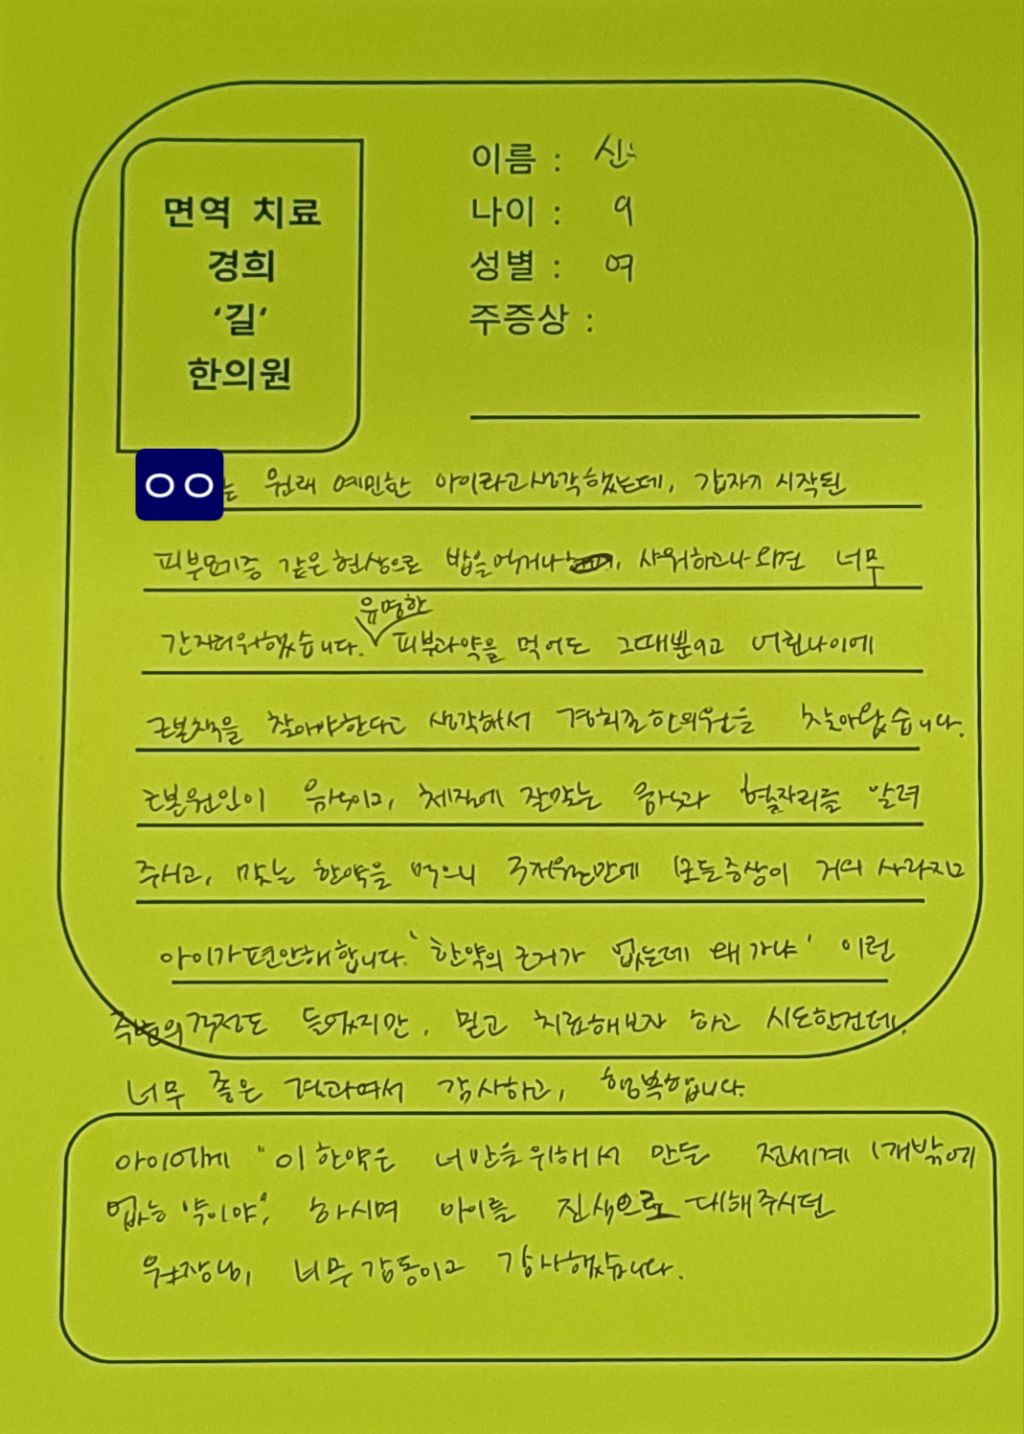 면역 치료
경희
'길'
한의원
이름 : 신
나이 : 9
성별 : 여
주증상 :
ㅇㅇ는 원래 예민한 아이라고 생각했는데, 갑자기 시작된
피부묘기증 같은 현상으로 밥을 먹거나, 샤워하고나오면 너무
간지러워했습니다. 유명한 피부과약을 먹어도 그때뿐이고 어린나이에
근본책을 찾아야한다고 생각해서 경희길한의원을 찾아왔습니다.
근본원인이 음식이고, 체질에 잘맞는 음식과 혈자리를 알려
주시고, 맞는 한약을 먹으니 두제만에 모든증상이 거의 사라지고
아이가 편안해합니다. '한약의 근거가 없는데 왜 가냐' 이런
주변의 걱정도 들었지만, 믿고 치료해보자 하고 시도한건데,
너무 좋은 결과여서 감사하고, 행복합니다.
아이에게 "이 한약은 너만을위해서 만든 전세계 1개밖에
없는 약이야", 하시며 아이를 진심으로 대해주시던
원장님, 너무감동이고 감사했습니다.